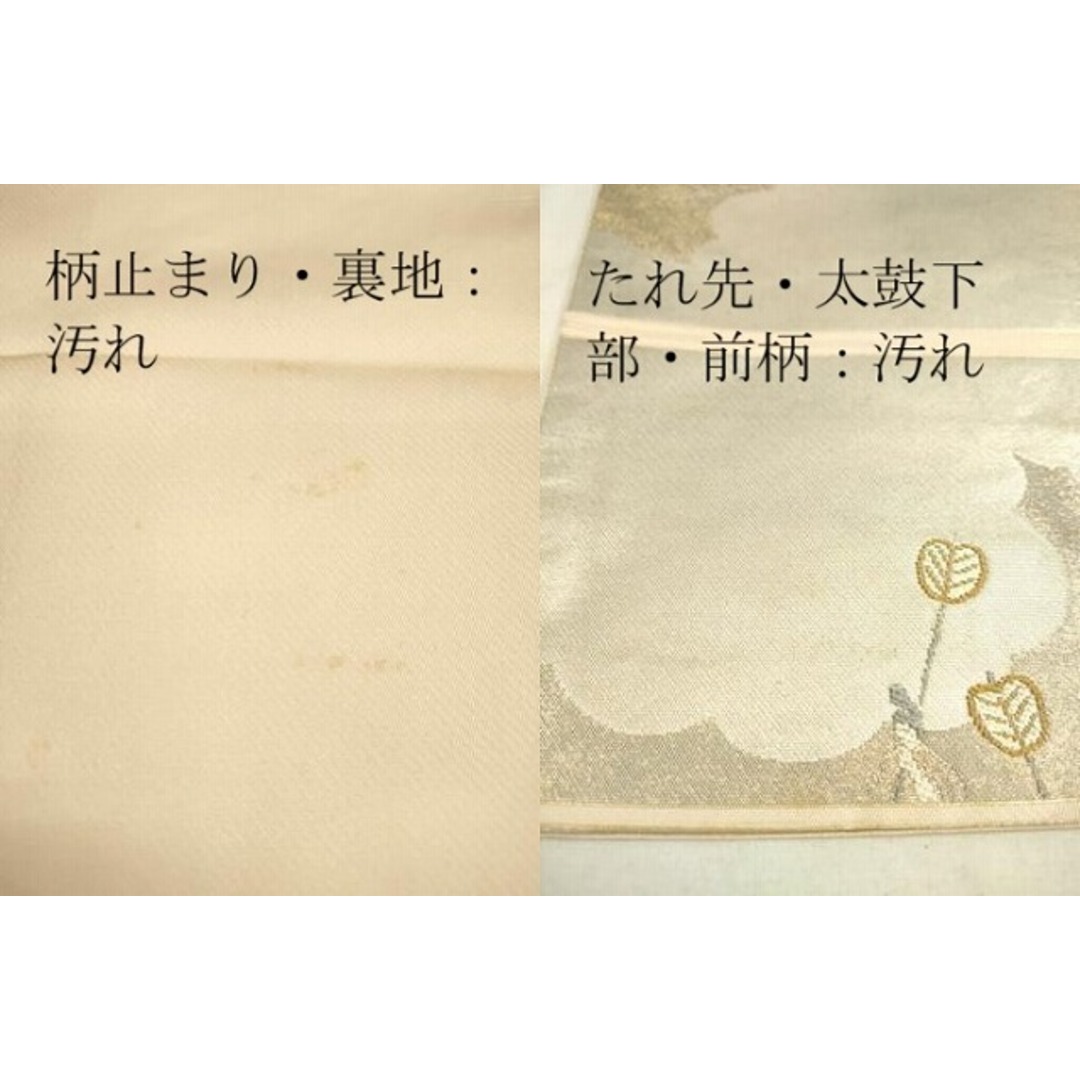 柄止まり・裏地：
汚れ
たれ先・太鼓下
部・前柄：汚れ